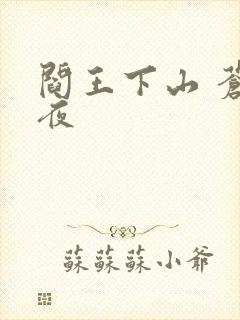 閻王下山 蒼
夜
蘇蘇蘇小爺